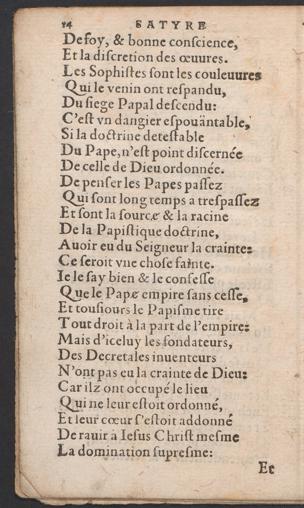 14 SATYRE
De foy, & bonne conſcience,
Et la diſcretion des œuures.
Les Sophiſtes ſont les couleuures
Qui le venin ont reſpandu,
Du ſiege Papal deſcendu:
C'eſt vn dangier eſpouãntable,
Si la doctrine deteſtable
Du Pape, n'eſt point diſcernée
De celle de Dieu ordonnée.
De penſer les Papes paſſez
Qui ſont long temps a treſpaſſez
Et ſont la ſource & la racine
De la Papiſtique doctrine,
Auoir eu du Seigneur la crainte:
Ce ſeroit vne choſe fainte.
Ie le ſay bien & le confeſſe
Que le Pape empire ſans ceſſe,
Et touſiours le Papiſme tire
Tout droit à la part de l'empire:
Mais d'iceluy les fondateurs,
Des Decretales inuenteurs
N'ont pas eu la crainte de Dieu:
Car ilz ont occupé le lieu
Qui ne leur eſtoit ordonné,
Et leur cœur ſ'eſtoit addonné
De rauir à Ieſus Chriſt meſme
La domination ſupreſme:
Et